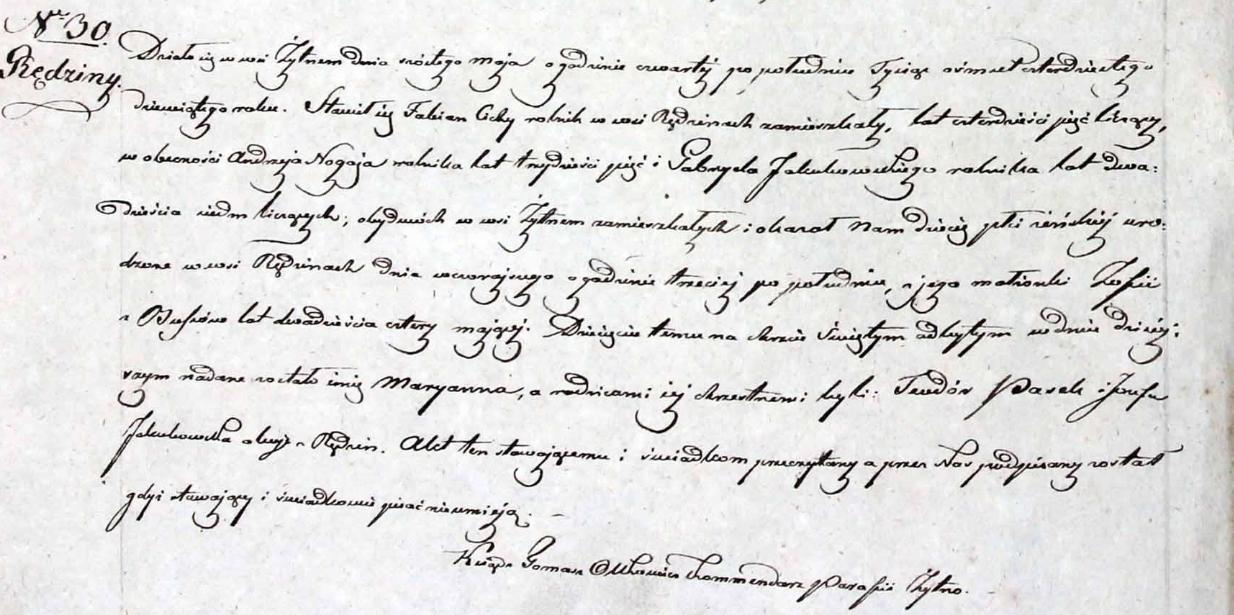 Nro 30.
Rędziny.
Działo się w wsi Żytnem dnia szóstego maja o godzinie czwartéj po południu Tysiąc ośmset czterdziestego
dziewiątego roku. Stawił się Fabian Cichy rolnik w wsi Rędzinach zamieszkały, lat czterdzieści pięć liczący,
w obecności Andrzeja Nogaja rolnika lat trzydzieści pięć i Gabryela Jakubowskiego rolnika lat dwa:
dzieścia siedm liczących; obydwóch w wsi Żytnem zamieszkałych i okazał Nam dziécię płci żeńskiéj uro:
dzone w wsi Rędzinach dnia wczorajszego o godzinie trzeciej po południu, z jego małżonki Zofii
z Busków lat dwadzieścia cztery mającéj. Dziecięciu temu na chrzcie Świętym odbytym w dniu dzisiéj:
szym nadane zostało imię Maryanna, a rodzicami jéj chrzestnemi byli: Teodór Pasek i Józefa
Jakubowska oboje z Rędzin. Akt ten stawającemu i świadkom przeczytany a przez Nas podpisany został
gdyż stawający i świadkowie pisać nieumieją. —
Ksiądz Tomasz Kommendarz Parafii Żytno.